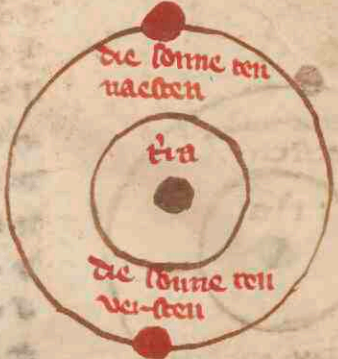 die sonne ten
naesten
t'ra
die sonne ten
versten